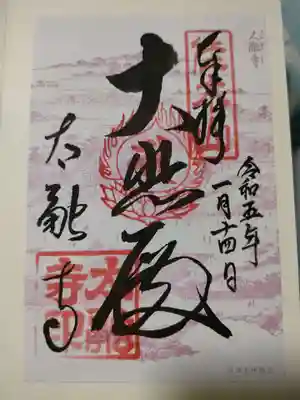 奉拝
令和五年
一月十四日
大悲殿
太融寺
太融寺印